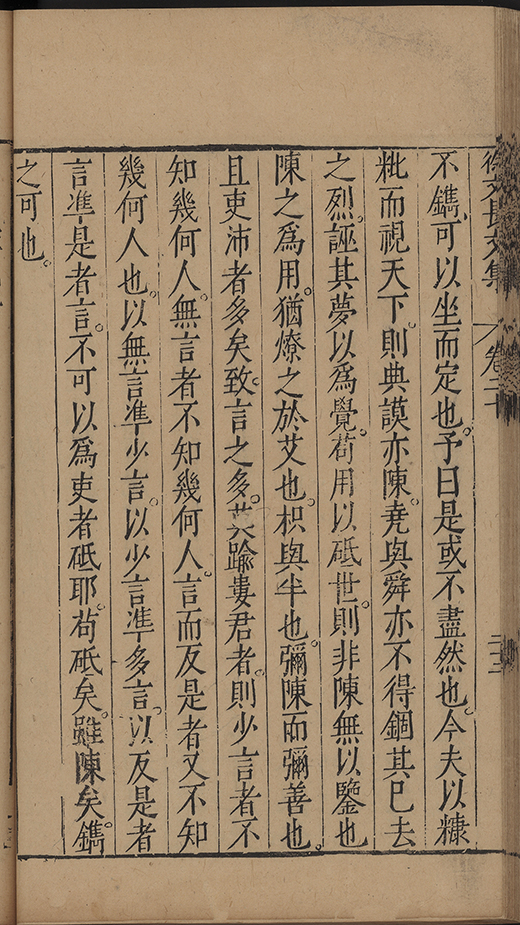 徐文長文集 卷二十
不鐫可以坐而定也。予曰是或不盡然也。今夫以糠
粃而視天下。則典謨亦陳。堯與舜亦不得錮其已去
之烈。誣其夢以爲覺。苟用以砥世。則非陳無以鑒也
陳之爲用。猶燎之於艾也。枳與半也。彌陳而彌善也。
且吏沛者多矣。致言之多。莫踰婁君者。則少言者不
知幾何人。無言者不知幾何人。言而反是者又不知
幾何人也。以無言準少言。以少言準多言。以反是者
言準是者言。不可以爲吏者砥耶。苟砥矣。雖陳矣。鐫
之可也。